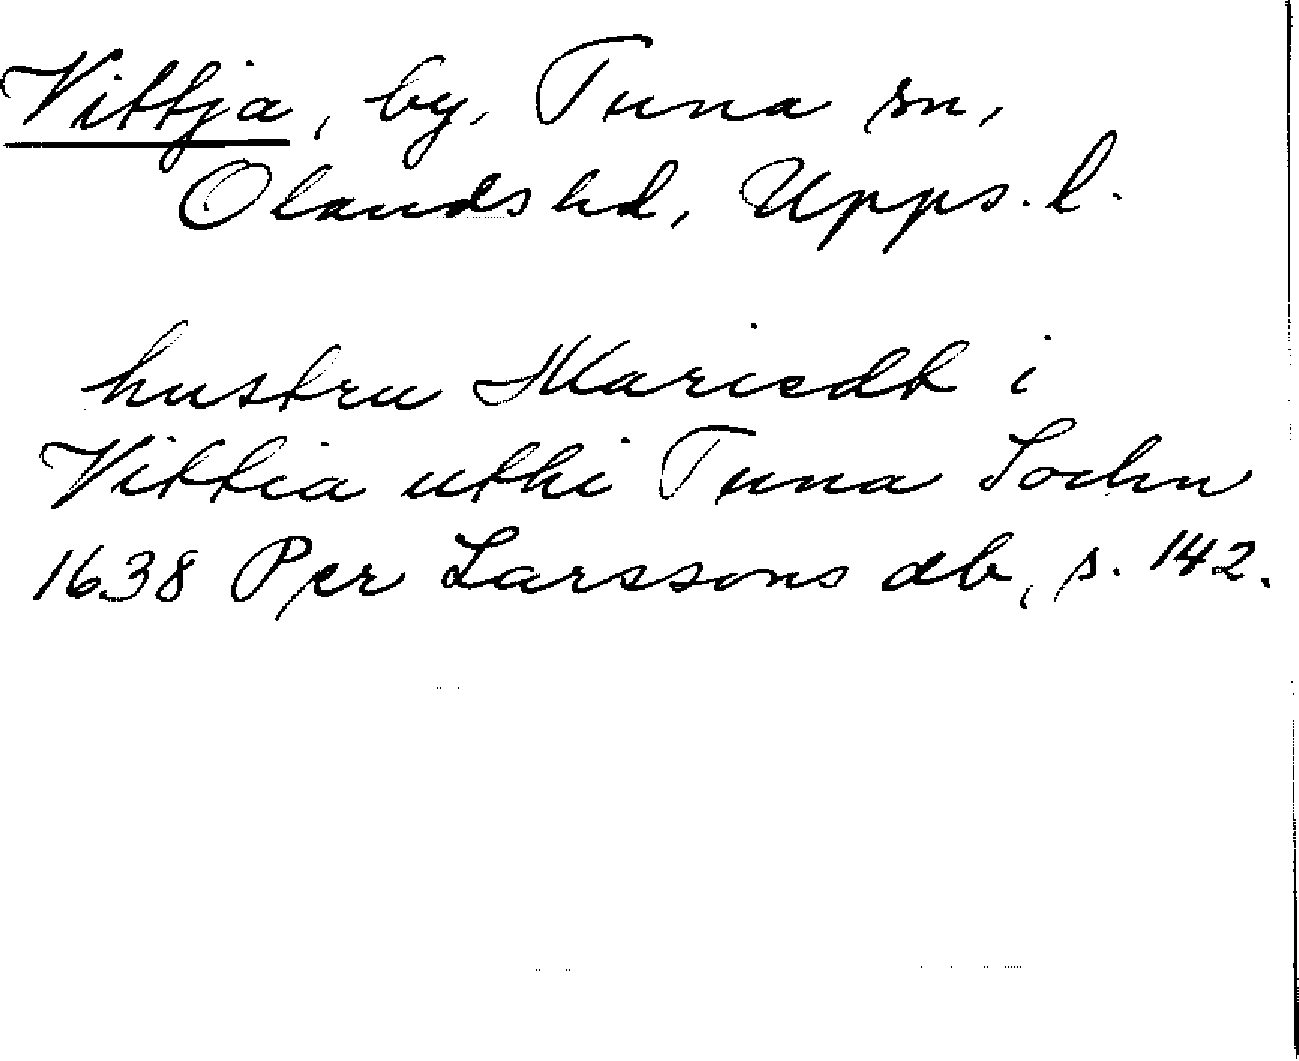 Vittja, by, Tuna sn,
Olands hd, Upps. l.
hustru Mariedt i
Vittia uthi Tuna Sochn
1638 Per Larssons db, s. 142.